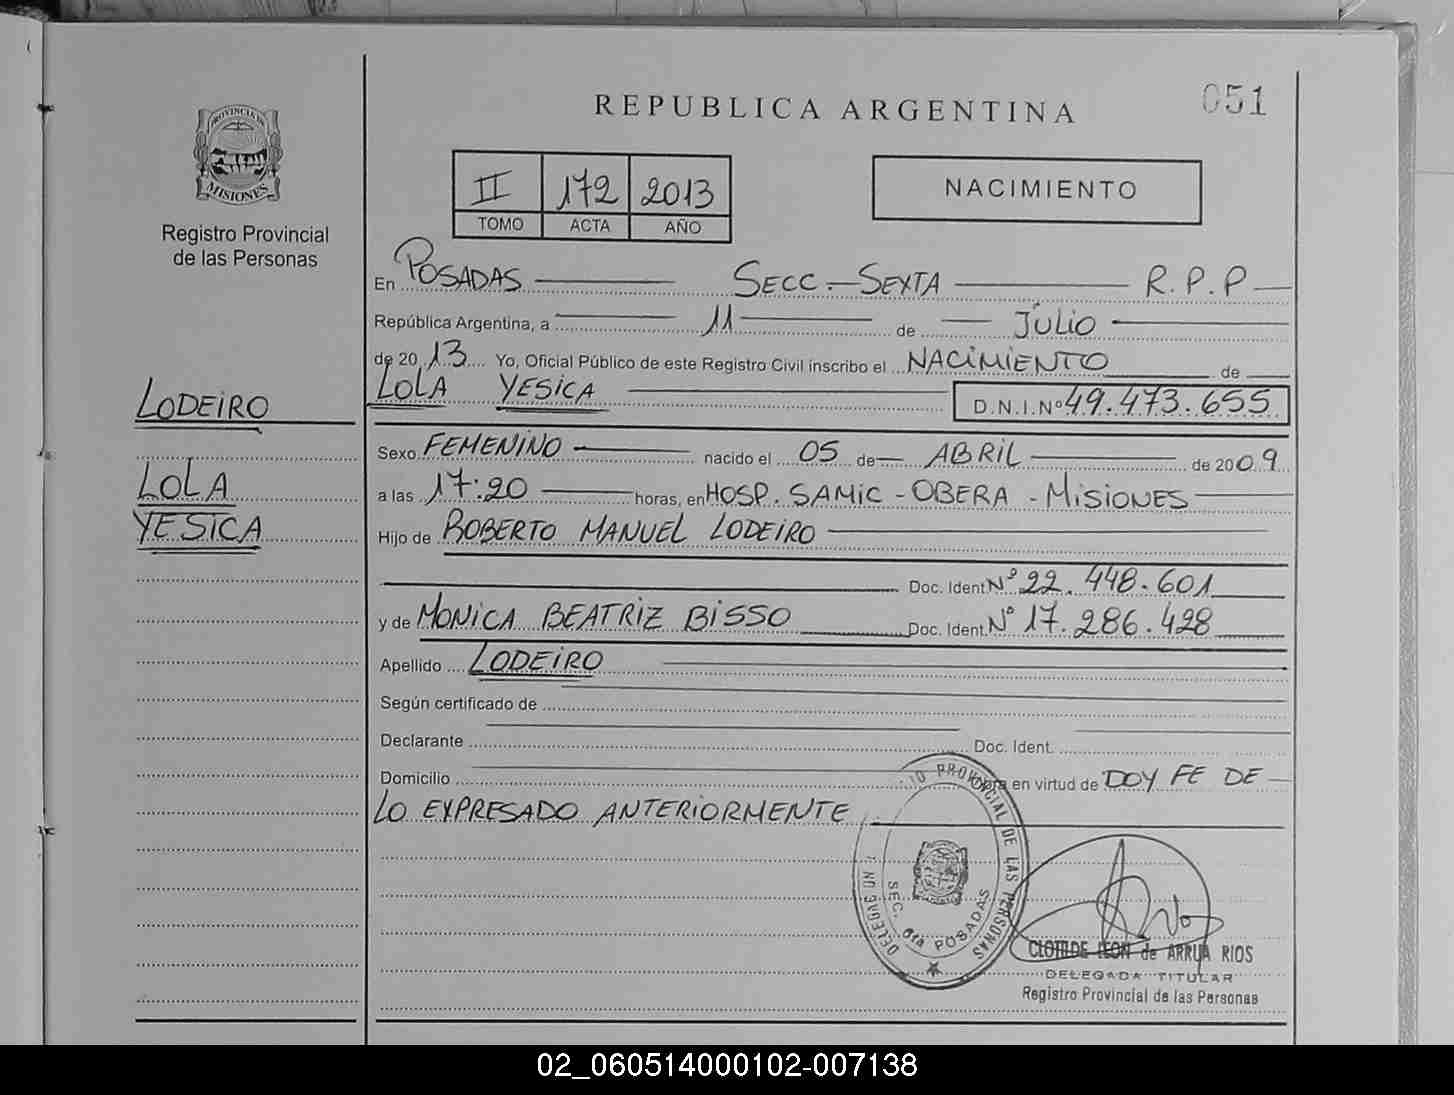 051
REPUBLICA ARGENTINA
PROVINCIA DE
MISIONES
Registro Provincial
de las Personas
II 172 2013
TOMO ACTA AÑO
NACIMIENTO
En POSADAS SECC. SEXTA R.P.P
República Argentina, a 11 de JULIO
de 20 13 Yo, Oficial Público de este Registro Civil inscribo el NACIMIENTO de
LOLA YESICA D.N.I.Nº 49.473.655
LODEIRO
LOLA
YESICA
Sexo FEMENINO nacido el 05 de ABRIL de 2009
a las 17:20 horas, en HOSP. SAMIC - OBERA - MISIONES
Hijo de ROBERTO MANUEL LODEIRO
Doc. Ident. Nº 22.448.601
y de MONICA BEATRIZ BISSO Doc. Ident. Nº 17.286.428
Apellido LODEIRO
Según certificado de
Declarante Doc. Ident.
Domicilio Obra en virtud de DOY FE DE
LO EXPRESADO ANTERIORMENTE
PROVINCIAL DE LAS PERSONAS
SEC. 6ta POSADAS
CLOTILDE LEON de ARRUA RIOS
DELEGADA TITULAR
Registro Provincial de las Personas
02_060514000102-007138